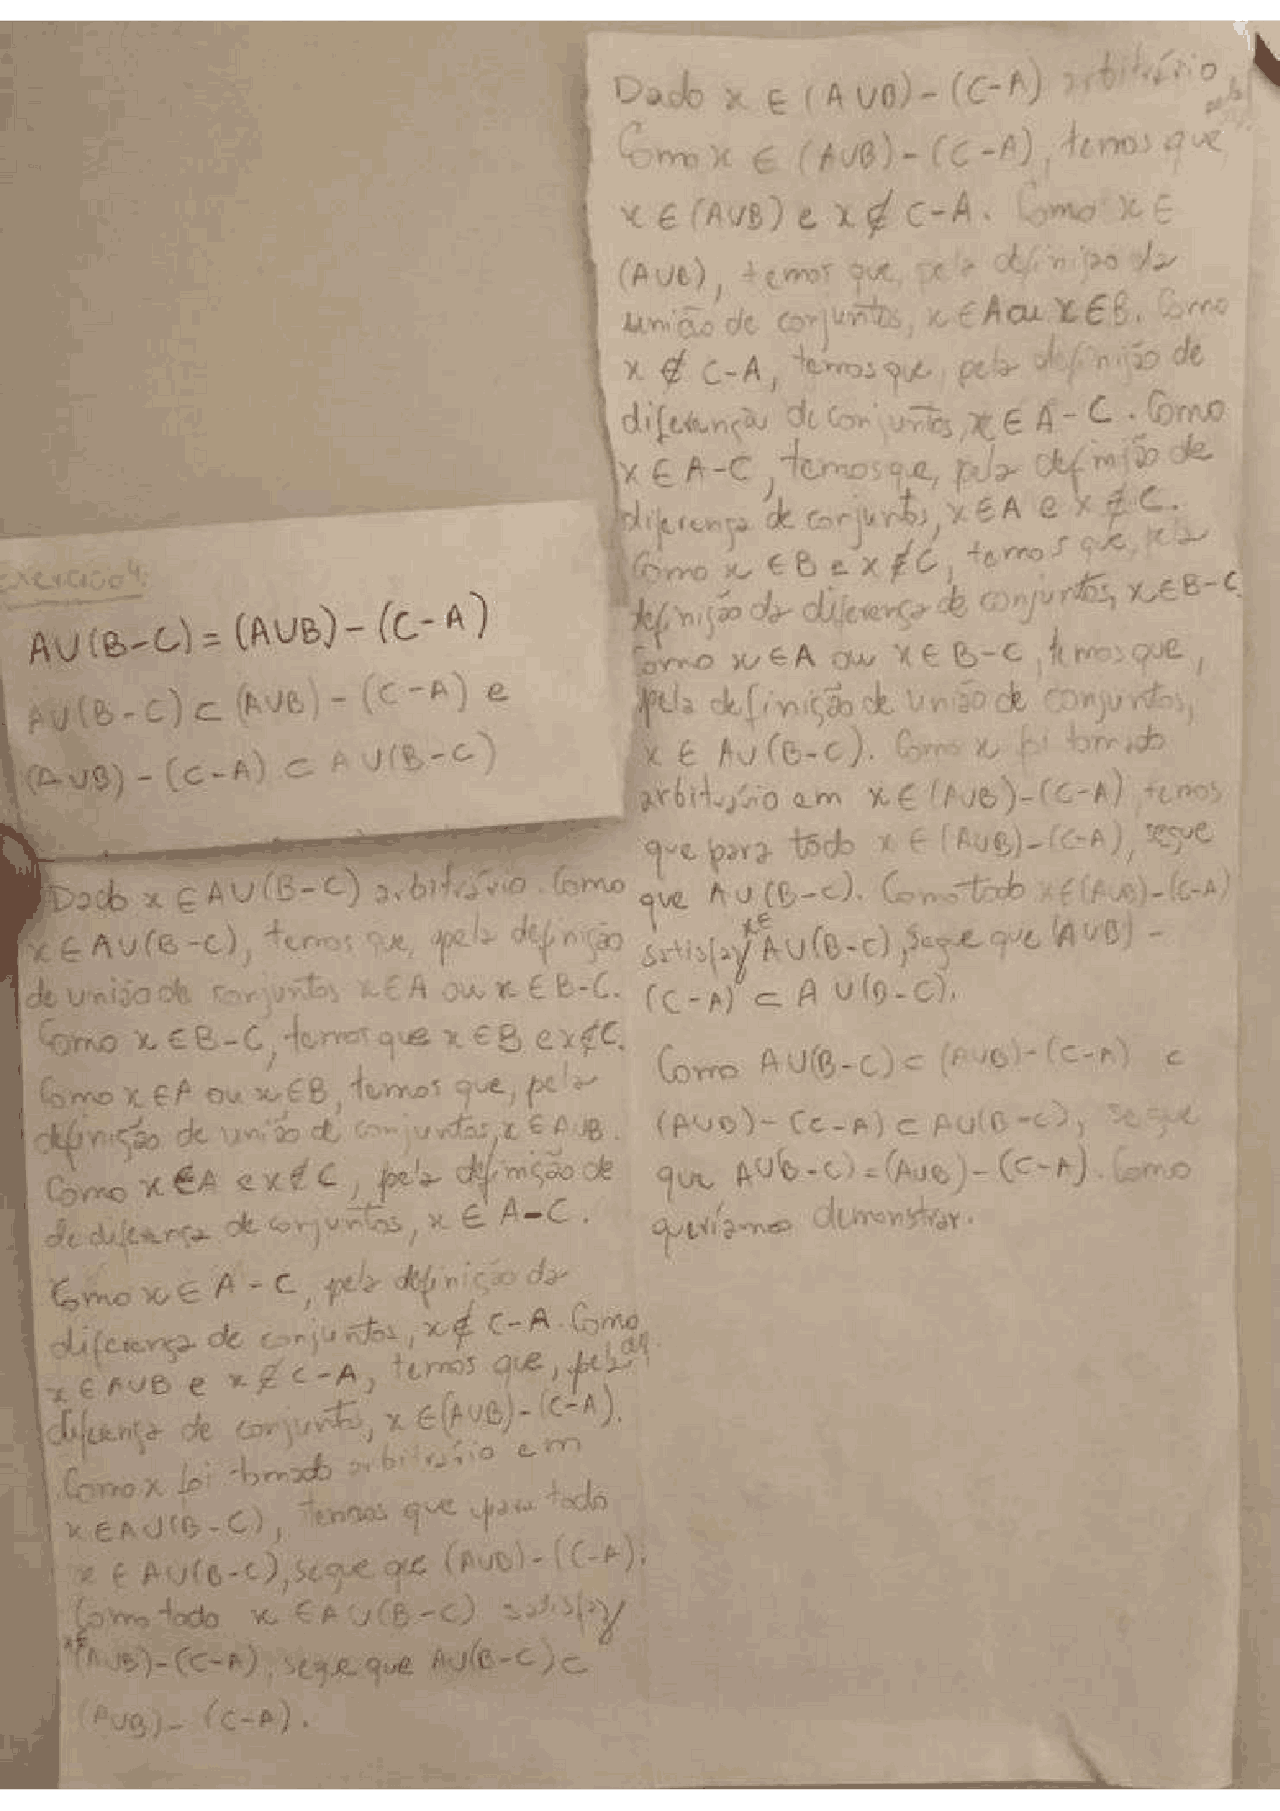 Exercício 4:
AU(B-C) = (AUB) - (C-A)
AU(B-C) ⊂ (AUB) - (C-A) e
(AUB) - (C-A) ⊂ AU(B-C)
Dado x ∈ AU(B-C) arbitrário. Como
x ∈ AU(B-C), temos que, pela definição
de união de conjuntos x ∈ A ou x ∈ B-C.
Como x ∈ B-C, temos que x ∈ B e x ∉ C.
Como x ∈ A ou x ∈ B, temos que, pela
definição de união de conjuntos, x ∈ AUB.
Como x ∈ A e x ∉ C, pela definição de
de diferença de conjuntos, x ∈ A-C.
Como x ∈ A-C, pela definição da
diferença de conjuntos, x ∉ C-A. Como
x ∈ AUB e x ∉ C-A, temos que, pela
diferença de conjuntos, x ∈ (AUB)-(C-A).
Como x foi tomado arbitrário em
x ∈ AU(B-C), temos que para todo
x ∈ AU(B-C), segue que (AUB)-(C-A).
Como todo x ∈ AU(B-C) satisfaz
x ∈ (AUB)-(C-A), segue que AU(B-C) ⊂
(AUB)-(C-A).
Dado x ∈ (AUB)-(C-A) arbitrário
Como x ∈ (AUB)-(C-A), temos que
x ∈ (AUB) e x ∉ C-A. Como x ∈
(AUB), temos que, pela definição da
união de conjuntos, x ∈ A ou x ∈ B. Como
x ∉ C-A, temos que, pela definição de
diferença de conjuntos, x ∈ A-C. Como
x ∈ A-C, temos que, pela definição de
diferença de conjuntos, x ∈ A e x ∉ C.
Como x ∈ B e x ∉ C, temos que, pela
definição da diferença de conjuntos, x ∈ B-C.
Como x ∈ A ou x ∈ B-C, temos que,
pela definição de união de conjuntos,
x ∈ AU(B-C). Como x foi tomado
arbitrário em x ∈ (AUB)-(C-A), temos
que para todo x ∈ (AUB)-(C-A), segue
que AU(B-C). Como todo x ∈ (AUB)-(C-A)
satisfaz x ∈ AU(B-C), segue que (AUB)-
(C-A) ⊂ AU(B-C).
Como AU(B-C) ⊂ (AUB)-(C-A) e
(AUB)-(C-A) ⊂ AU(B-C), segue
que AU(B-C) = (AUB)-(C-A). Como
queríamos demonstrar.